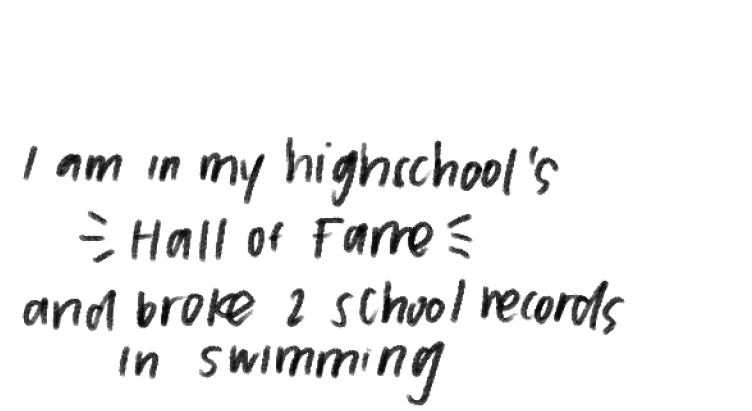 I am in my highschool's
Hall of Fame
and broke 2 school records
in swimming